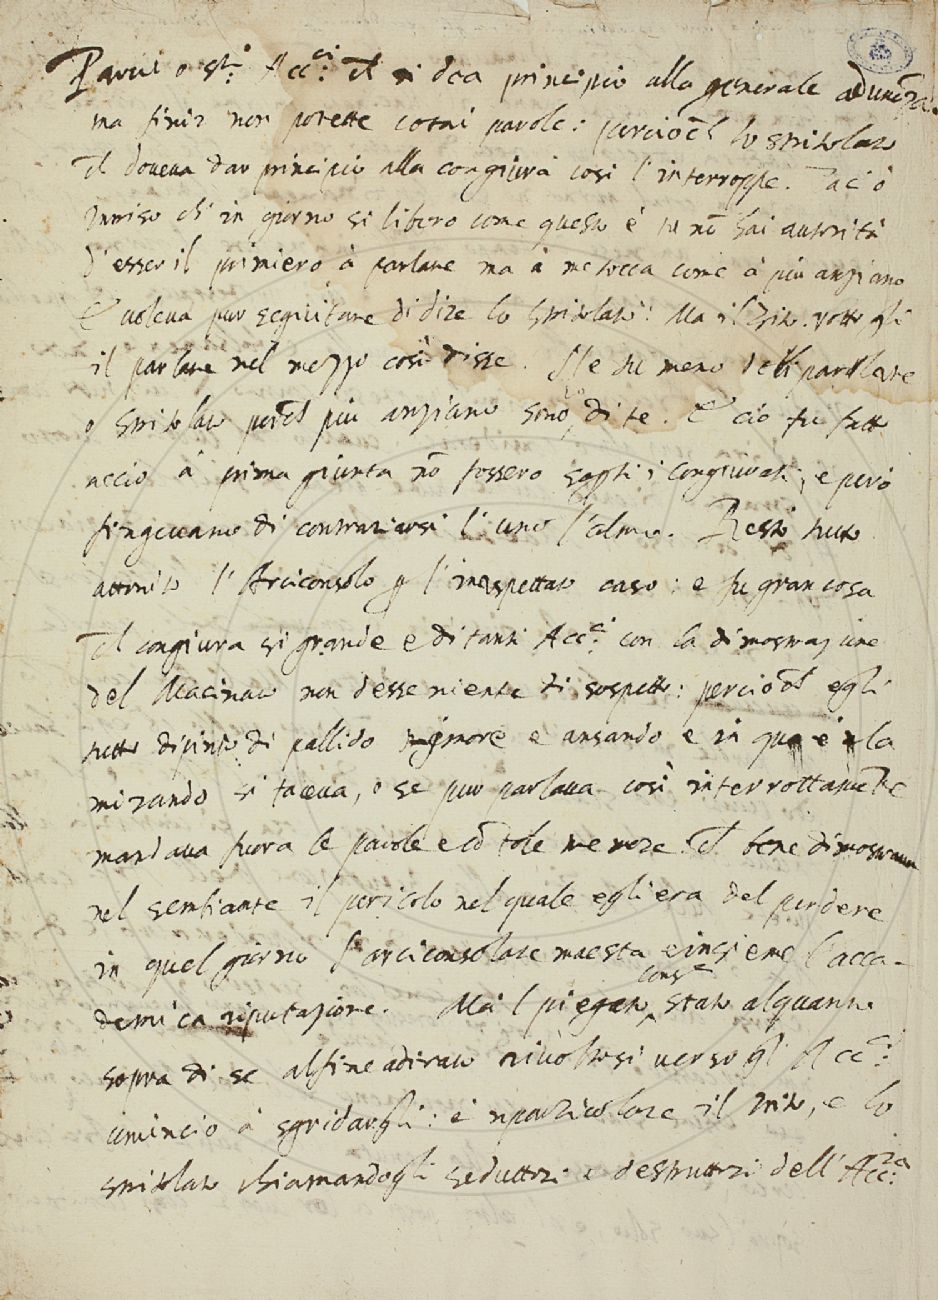 Parui o st.i Acc.ci ch si dea principio alla generale adunãza.
ma finir non potette cotai parole: percioch lo stritolato
ch doveva dar principio alla congiura cosi l'interroppe. Taci ò
Intriso ch in giorno si libero come questo è tu nõ hai autorità
d'esser il primiero à parlare ma à me tocca come à piu anziano
E voleva pur seguitare di dire lo Stritolato: Ma il Trito rotto gli
il parlare nel mezzo cosi disse. Ne tu meno dei parlare
o Stritolato perch piu anziano sono io di te. E ciò fu fatto
accio à prima giunta nõ fossero scopti i congiurati; e però
fingevano di contrariarsi l'uno l'altro. Restò tutto
attonito l'Arciconsolo p l'inaspettato caso: e fu gran cosa
ch congiura si grande e di tanti Acc.ci con la dimostrazione
del Macinato non desse niente di sospetto: percioch egli
tutto dipinto di pallido timore e ansando e in qua e in la
mirando si taceva, o se pur parlava cosi interrottamẽte
mandava fuora le parole e cõ tale tremore ch bene dimostrava
nel sembiante il pericolo nel quale egli era del perdere
in quel giorno l'arciconsolare maesta e insieme l'acca-
demica riputazione. Ma l piegato cons.o stato alquanto
sopra di se alfine adirato rivoltosi verso gli Acc.ci
cominciò à sgridargli: e in particolare il Trito, e lo
stritolato chiamandogli seduttori e destruttori dell'Acc.za